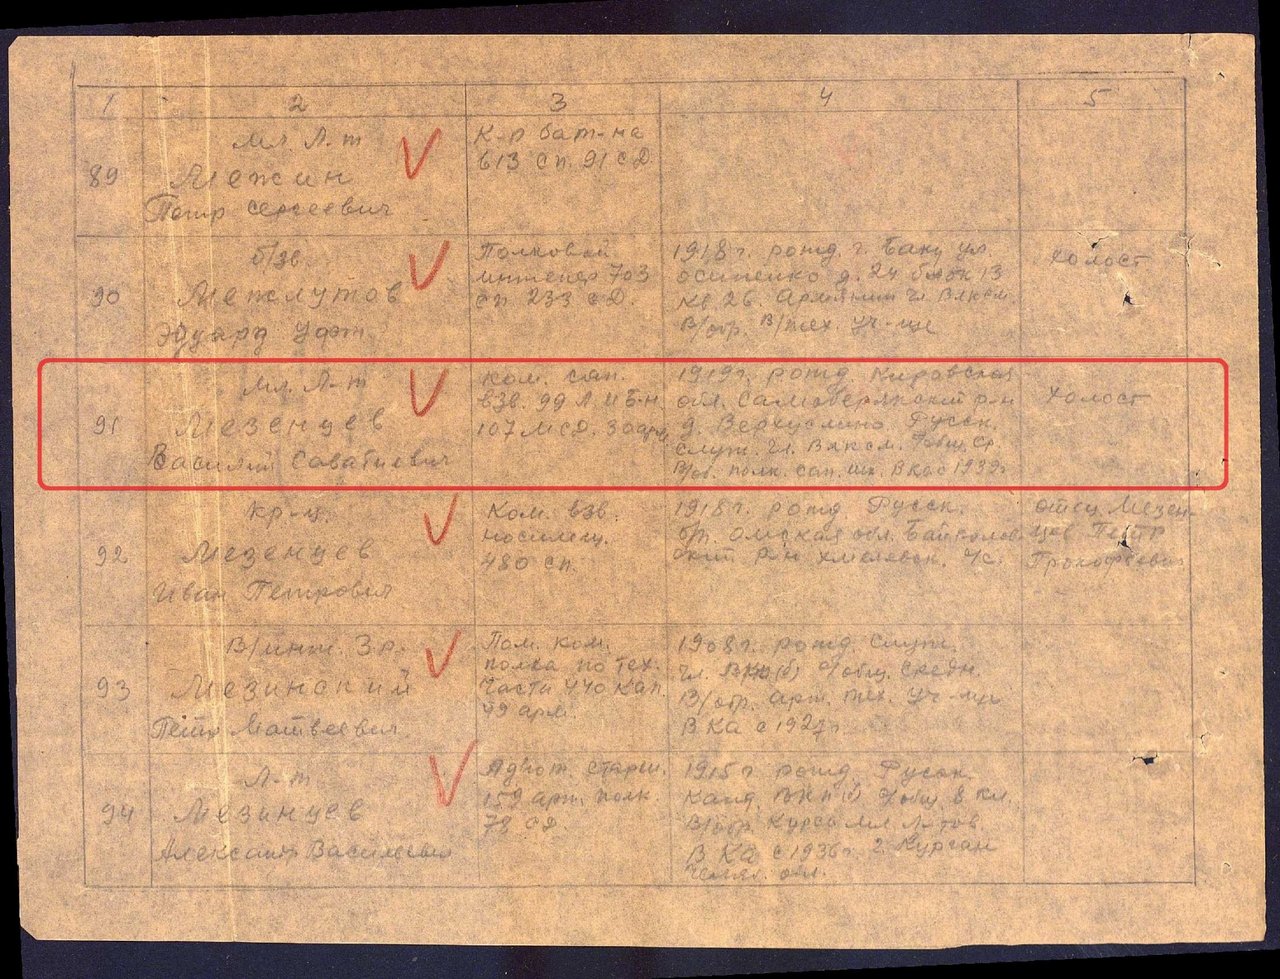 1 2 3 4 5
89
Мл. Л-т
Межин
Петр Сергеевич
К-р бат-на
613 СП. 91 СД
90
б/зв.
Межлумов
Эдуард
Полковой
инженер 703
СП 233 СД.
1918 г. рожд. г. Баку ул
Осипенко д. 24 блок 13
кв 26. Армянин чл Влксм
В/обр. В/тех. Уч-ще
Холост
91
Мл. Л-т
Мезенцев
Василий Саватиевич
Ком. сап.
взв. 99 Л.И Б-н
107 МСД. 30 арм
1919 г. рожд Кировская
обл. р-н
д. Русск.
служ. чл. Влксм. общ ср
В/об. полк. сап. шк. В КА с 1939г.
Холост
92
Кр-ц.
Мезенцев
Иван Петрович
Ком. взв.
носильщ.
480 СП.
1918 г. рожд Русск.
б/п. Омская обл.
ский р-н с/с.
отец Мезен
цев Петр
Прокофеевич
93
В/инж. 3 р.
Мезинский
Петр Матвеевич.
Пом. Ком.
полка по тех.
части 440 кап
49 арм.
1908 г. рожд. Служ.
чл. ВКП(б) общ. средн.
В/обр. Арт. тех. уч-ще
В КА с 1927 г.
94
Л-т
Мезинцев
Александр Васильевич
Адъют. старш.
159 арт. полк.
78 СД.
1915 г рожд. Русск.
Канд. ВКП(б) общ 8 кл.
В/обр Курсы Мл л-тов.
В КА с 1936 г.
обл.